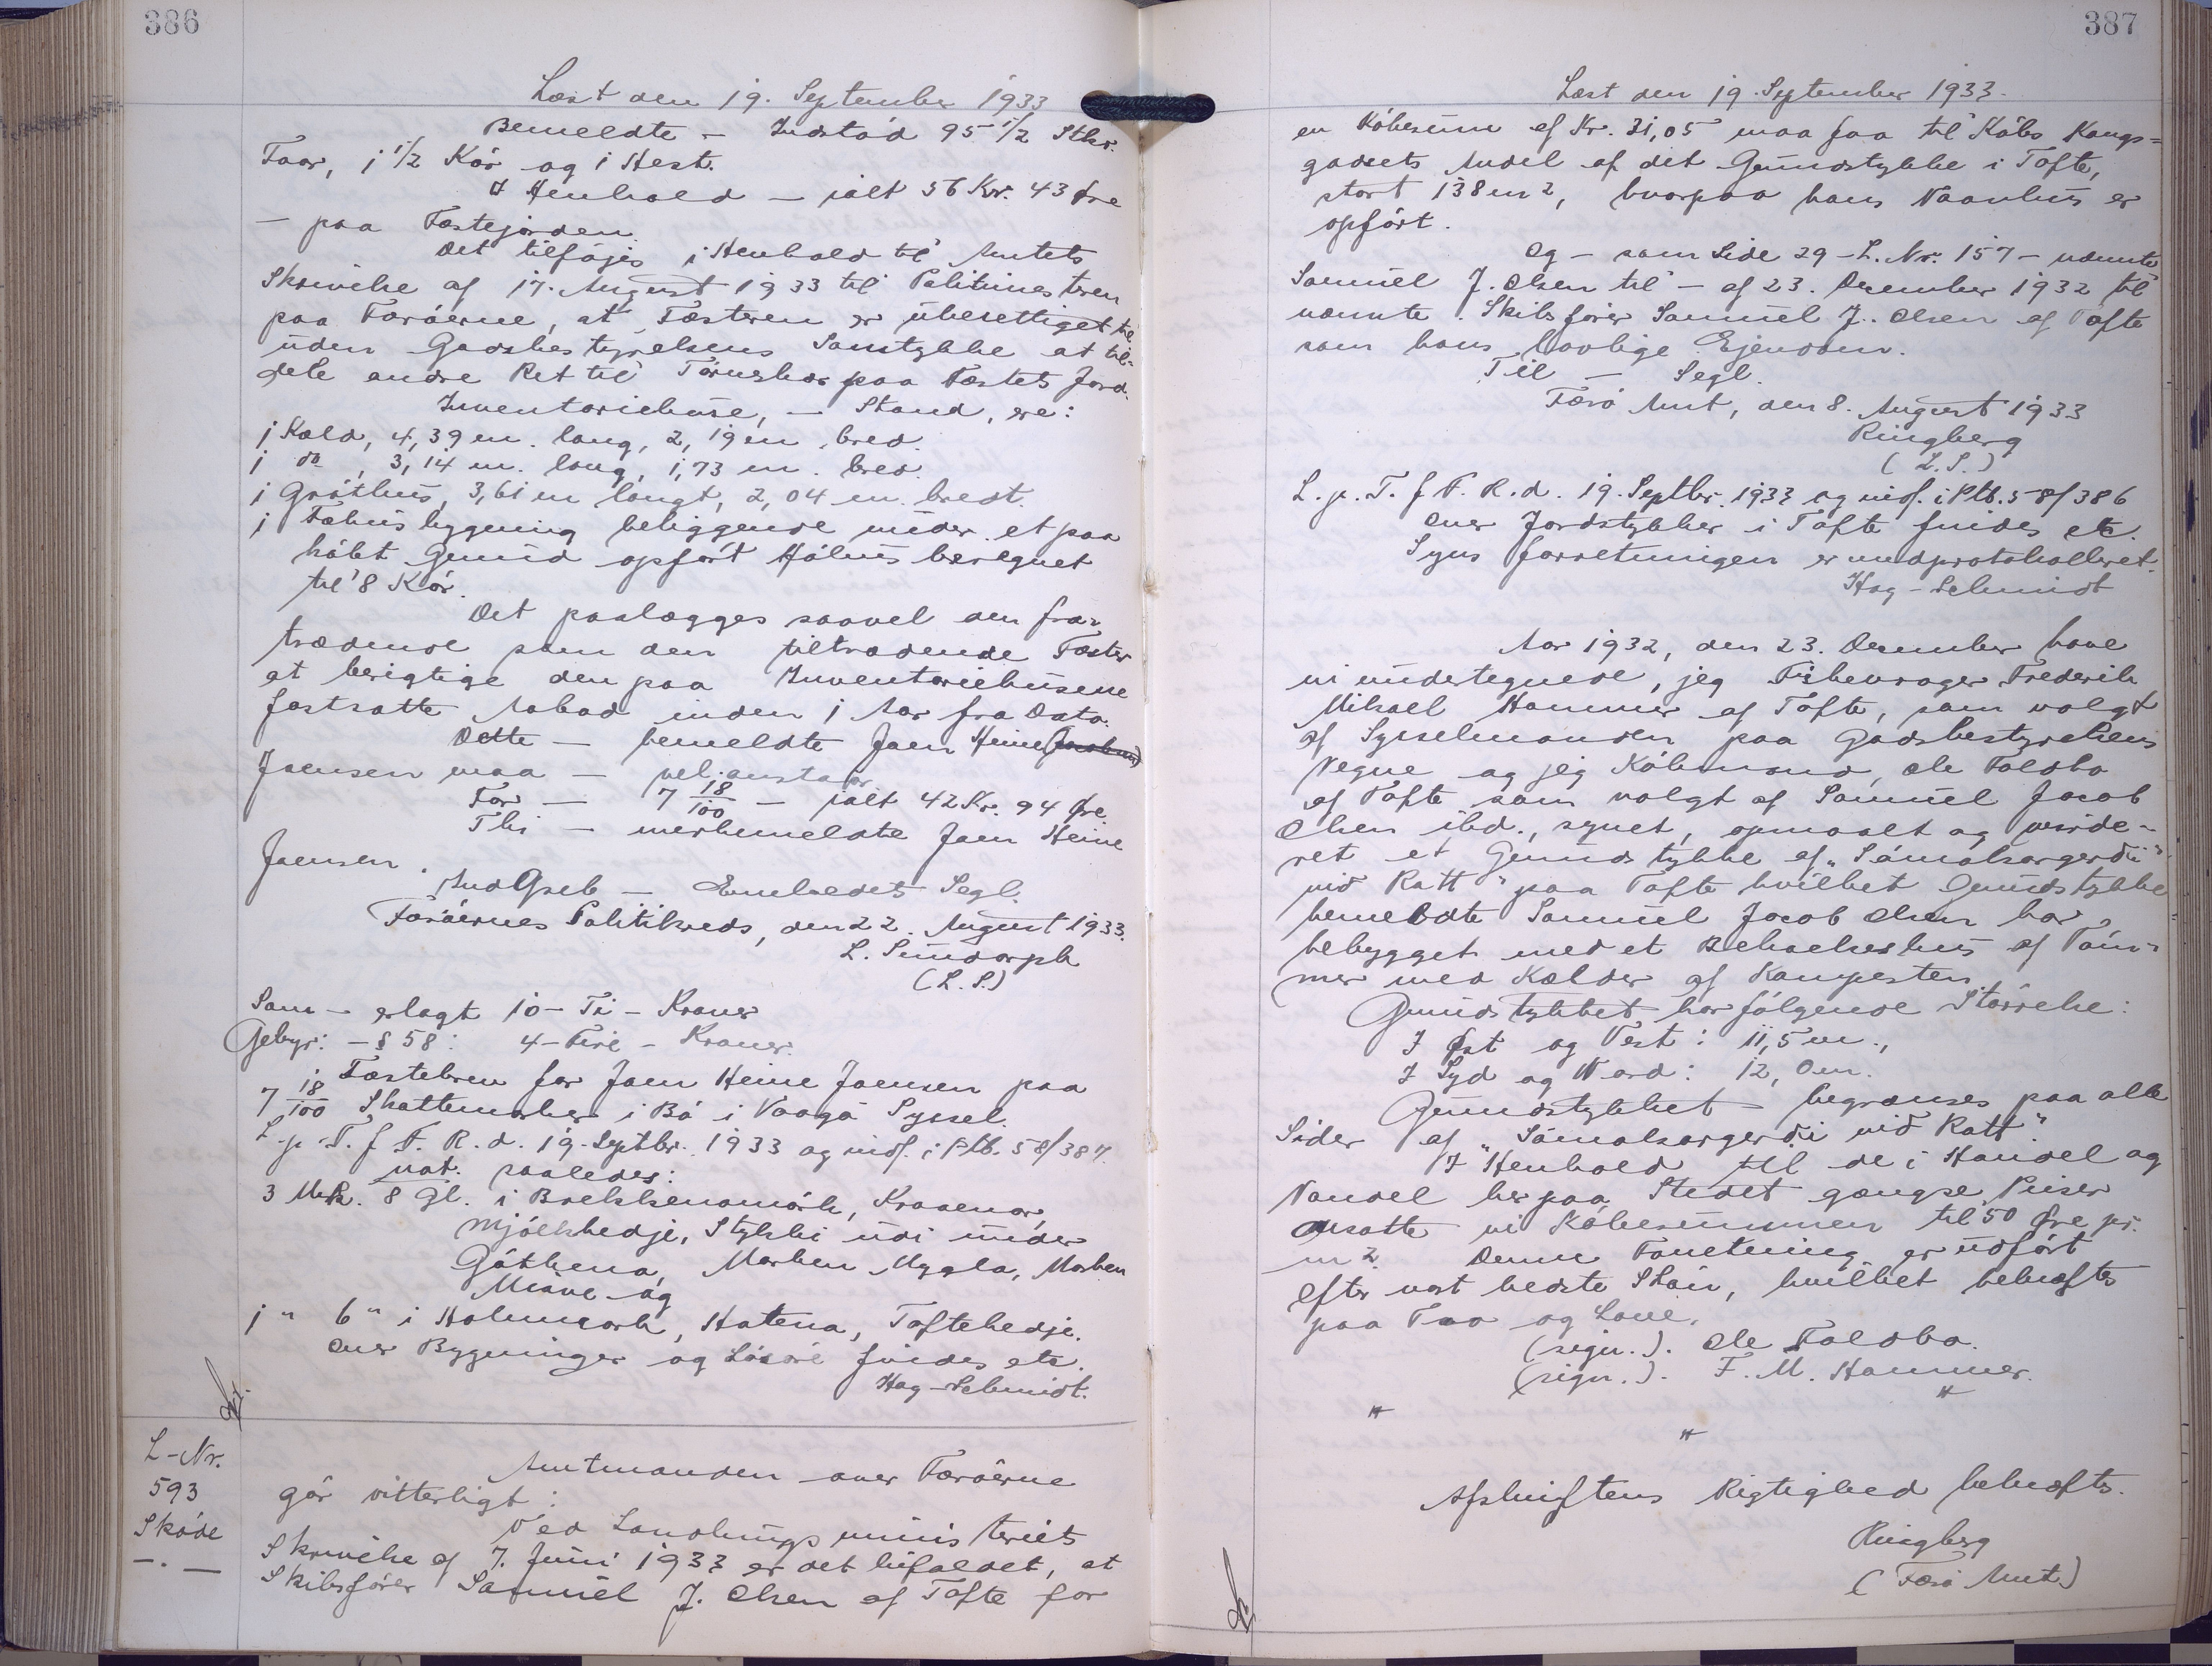 386
Læst den 19. September 1933
Bemeldte - Indstød 95 1/2 Stkr.
Faar, 1 1/2 Kór og 1 Hest.
I Henhold - ialt 56 Kr. 43 Øre
- paa Fæstejorden.
Det tilføjes i Henhold til Amtets
Skrivelse af 17. August 1933 til Politimesteren
paa Færöerne, at Fæsteren er uberettiget til
uden Godsbestyrelsens Samtykke at til-
dele andre Ret til Tørveskær paa Fæstets Jord.
Inventariehuse, - Stand, ere:
1 Kold, 4,39 m. lang, 2,19 m bred.
1 do , 3,14 m. lang, 1,73 m. bred.
1 Gróthús, 3,61 m langt, 2,04 m bredt.
1 Fähusbygning beliggende under et paa
købt Grund opført Hølus beregnet
til 8 Kór.
Det paalægges saavel den fra-
trædende som den tiltrædende Fæster
at berigtige den paa Inventariehusene
fastsatte Aabod inden 1 Aar fra Dato.
Dette - bemeldte Joen Heine
Joensen maa - vel anstaar
For - 7 18/100 - ialt 42 Kr. 94 Øre.
Thi - merbemeldte Joen Heine
Joensen.
Indgreb - Embedets Segl.
Færöernes Politikreds, den 22. August 1933.
L. Simdorph
(L.S.)
Sam - erlagt 10 - Ti - Kroner
Gebyr: - § 58: 4 - Fire - Kroner.
Fæstebrev for Joen Heine Joensen paa
7 18/100 Skattemarker i Bö i Vaagö Syssel.
L. p. T. f F. R. d. 19. Septbr. 1933 og indf. i Ptb. 58/387.
not. saaledes:
3 Mrk. 8 Gl. i Brekkenamörk, Kraaenar,
Mjóelkhedje, Stykki udi under
Göthena, Marken Mygla, Marken
Miave og
1 " 6 " i Holmgark, Hatena, Toftehedje.
Over Bygninger og Lösöre findes etc.
Hag-Schmidt.
L-Nr.
593
Skóde
- . -
Amtmanden over Færöerne
gör vitterligt:
Ved Landbrugsministeriets
Skrivelse af 7. Juni 1933 er det bifaldet, at
Skibsfører Samuel J. Olsen af Tofte for
387
Læst den 19. September 1933.
en Købesum af Kr. 31,05 maa faa til Købs Kongs=
godsets Andel af det Grundstykke i Tofte,
stort 138 m2, hvorpaa hans Vaanhus er
opført.
Og - som Side 29 - L. Nr. 157 - nævnte
Samuel J. Olsen til - af 23. December 1932 til
nævnte Skibsfører Samuel J. Olsen af Tofte
som hans lovlige Ejendom.
Til - Segl.
Færö Amt, den 8. August 1933
Ringberg
(L.S.)
L. p. T. f F. R. d. 19. Septbr. 1933 og indf. i Ptb. 58/386
Over Jordstykker i Tofte findes etc.
Synsforretningen er medprotokolleret.
Hag-Schmidt
Aar 1932, den 23. December have
vi undertegnede, jeg Fiskevrager Frederik
Mikael Hammer af Tofte, som valgt
af Sysselmanden paa Godsbestyrelsens
Vegne og jeg Købmand, Ole Foldbo
af Tofte som valgt af Samuel Jacob
Olsen ibd., synet, opmaalt og vurde-
ret et Grundstykke af "Sámalsargerdi
við Ratt" paa Tofte hvilket Grundstykke
bemeldte Samuel Jacob Olsen har
bebygget med et Beboelseshus af Töm-
mer med Kælder af Kampesten
Grundstykket har følgende Størrelse:
I Øst og Vest: 11,5 m.,
I Syd og Nord: 12,0 m.
Grundstykket begrænses paa alle
Sider af "Sámalsargerdi við Ratt"
I Henhold til de i Handel og
Vandel her paa Stedet gængse Priser
ansatte vi Købesummen til 50 Øre pr.
m2. Denne Forretning er udført
efter vort bedste Skøn, hvilket bekræftes
paa Tro og Love.
(sign.). Ole Foldbo.
(sign.). F. M. Hammer.
Afskriftens Rigtighed bekræftes.
Ringberg
(Færö Amt)